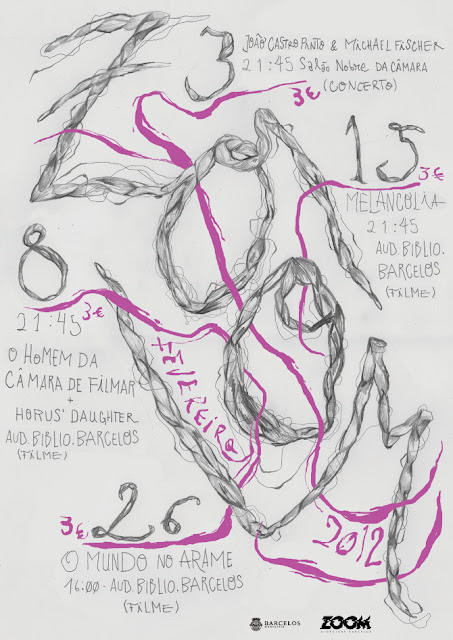 ZOOM
3
JOÃO CASTRO PINTO & MICHAEL FISCHER
21:45 SALÃO NOBRE DA CÂMARA
(CONCERTO)
3€
15
3€
MELANCOLIA
21:45
AUD. BIBLIO.
BARCELOS
(FILME)
8
3€
21:45
O HOMEM DA
CÂMARA DE FILMAR
+
HORUS' DAUGHTER
AUD. BIBLIO. BARCELOS
(FILME)
FEVEREIRO
26
3€
O MUNDO NO ARAME
16:00 - AUD. BIBLIO. BARCELOS
(FILME)
2012
BARCELOS
ZOOM